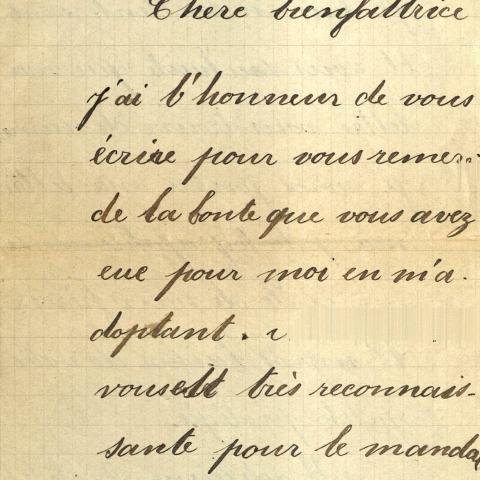 Chere bienfattrice
j'ai l'honneur de vous
écrire pour vous remer..
de la bonte que vous avez
eue pour moi en m'a.
doptant.
vous est très reconnais-
sante pour le manda